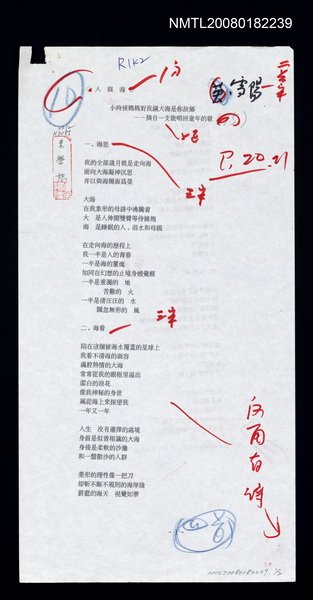 NMTL20080182239
R1K2
人與海
小時候媽媽對我講大海是你故鄉
——摘自一支能唱回童年的歌
P.20.21
一、海思
我的全部歲月就是走向海
面向大海凝神沉思
并以與海爾面爲榮
大海
在我象形的母語中沸騰着
大 是人伸開雙臂等待擁抱
海 是睡眠的人、泪水和母親
在走向海的歷程上
我一半是人的青春
一半是海的靈魂
如同在幻想的止境身後覺醒
一半是重濁的 地
苦難的 火
一半是清汪汪的 水
飄忽無形的 風
二、海看
陷在這個被海水覆蓋的星球上
我看不清海的面容
滿腔熱情的大海
常常從我的眼框里溢出
潔白的浪花
像我神秘的身世
風從海上來探望我
一年又一年
人生 沒有選擇的處境
身前是似曾相識的大海
身後是柔軟的沙灘
和一盤散沙的人群
菱形的理性像一把刀
却斬不斷不規則的海岸綫
蔚藍的海天 視覺如夢
反面有詩
NMTL20080182239